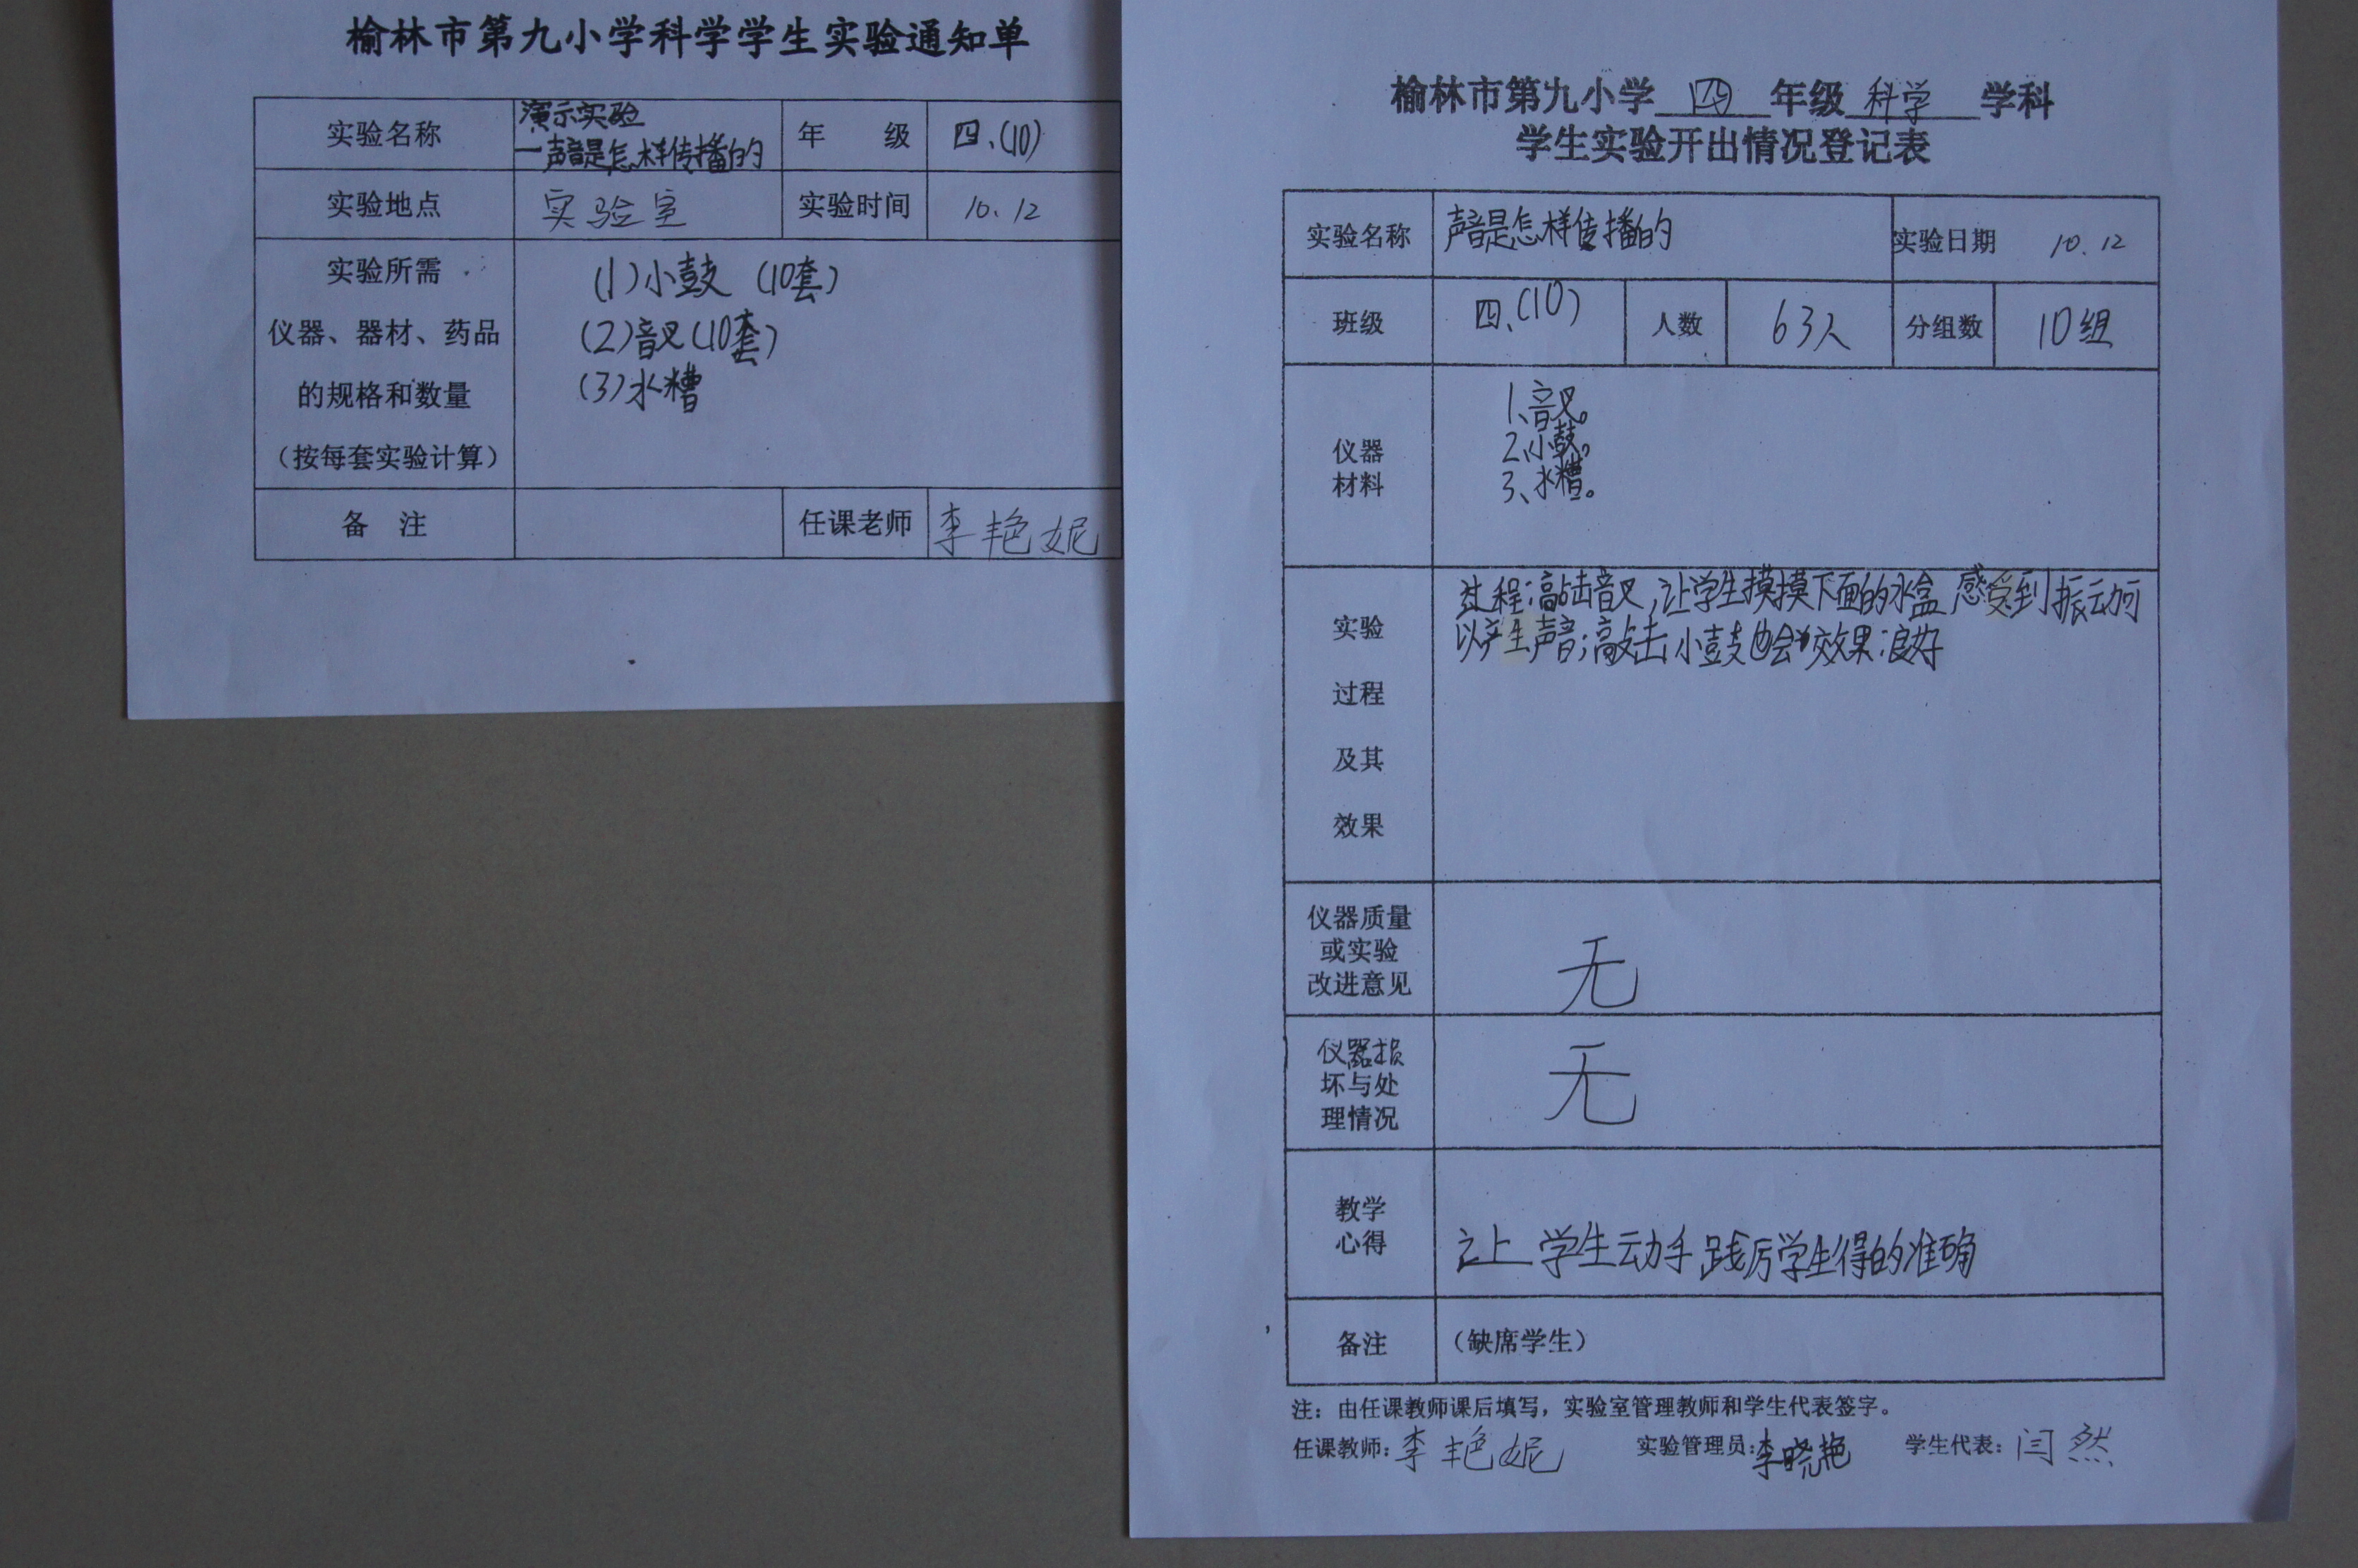 榆林市第九小学科学学生实验通知单
实验名称 演示实验
一声音是怎样传播的
年 级 四、(10)
实验地点 实验室 实验时间 10.12
实验所需
仪器、器材、药品
的规格和数量
（按每套实验计算）
(1)小鼓 (10套)
(2)音叉(10套)
(3)水槽
备 注 任课老师 李艳妮
榆林市第九小学 四 年级 科学 学科
学生实验开出情况登记表
实验名称 声音是怎样传播的 实验日期 10.12
班级 四、(10) 人数 63人 分组数 10组
仪器
材料
1、音叉。
2、小鼓。
3、水糟。
实验
过程
及其
效果
过程:敲击音叉,让学生摸摸下面的水盒,感受到振动可
以产生声音;敲击小鼓也会,效果:良好
仪器质量
或实验
改进意见
无
仪器损
坏与处
理情况
无
教学
心得
让学生动手,学生得的准确
备注 （缺席学生）
注：由任课教师课后填写，实验室管理教师和学生代表签字。
任课教师: 李艳妮 实验管理员: 李晓艳 学生代表: 闫然